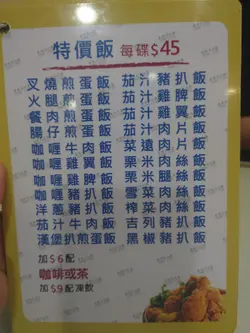 特價飯 每碟$45
叉燒煎蛋飯
火腿煎蛋飯
餐肉煎蛋飯
腸仔煎蛋飯
咖喱牛肉飯
咖喱雞翼飯
咖喱豬扒飯
洋蔥豬扒飯
茄汁牛肉飯
漢堡扒煎蛋飯
茄汁豬扒飯
茄汁雞脾飯
茄汁雞翼飯
茄汁肉片飯
菜遠肉片飯
粟米肉絲飯
粟米腿絲飯
雪菜肉絲飯
吉列豬扒飯
黑椒豬扒飯
加$6配
咖啡或茶
加$9配凍飲